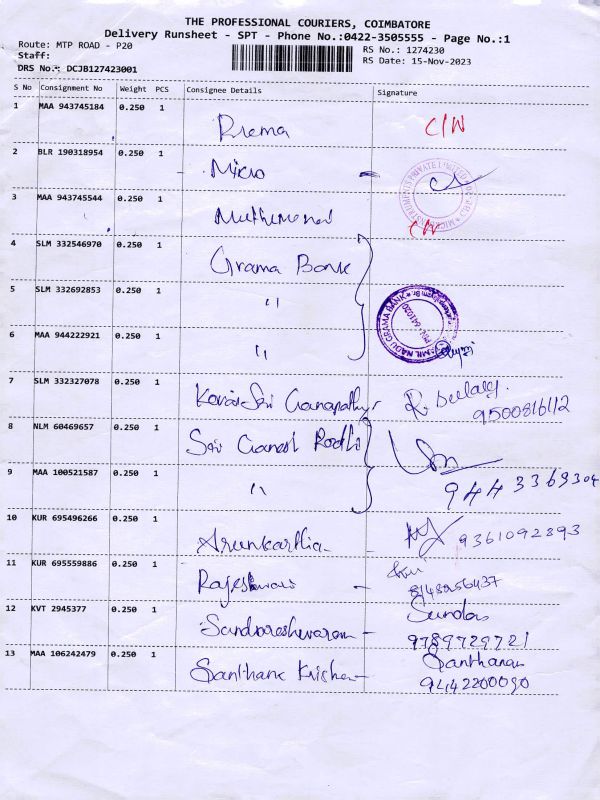 THE PROFESSIONAL COURIERS, COIMBATORE
Delivery Runsheet - SPT - Phone No.:0422-3505555 - Page No.:1
Route: MTP ROAD - P20 RS No.: 1274230
Staff: RS Date: 15-Nov-2023
DRS No.: DCJB127423001
S No Consignment No Weight PCS Consignee Details Signature
1 MAA 943745184 0.250 1 Prema C/W
2 BLR 190318954 0.250 1 Micro
3 MAA 943745544 0.250 1 C/W
4 SLM 332546970 0.250 1 Grama Bank
5 SLM 332692853 0.250 1 "
6 MAA 944222921 0.250 1 "
TAMIL NADU GRAMA BANK
7 SLM 332327078 0.250 1 Sri Ganapathy R.
9500816112
8 NLM 60469657 0.250 1 Sri Ganesh
9 MAA 100521587 0.250 1 " 9443369304
10 KUR 695496266 0.250 1 Arunkarthi 9361092893
11 KUR 695559886 0.250 1 Rajeshwari - 8148256437
12 KVT 2945377 0.250 1 - Sundar
9789729721
13 MAA 106242479 0.250 1 Santhana Krishna - Santhanam
9442200090